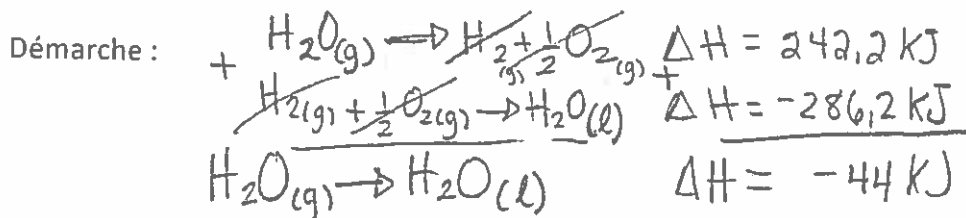 Démarche : + H₂O(g) → H₂(g) + 1/2 O₂(g) + ΔH = 242,2 kJ
H₂(g) + 1/2 O₂(g) → H₂O(l) ΔH = -286,2 kJ
H₂O(g) → H₂O(l) ΔH = -44 kJ